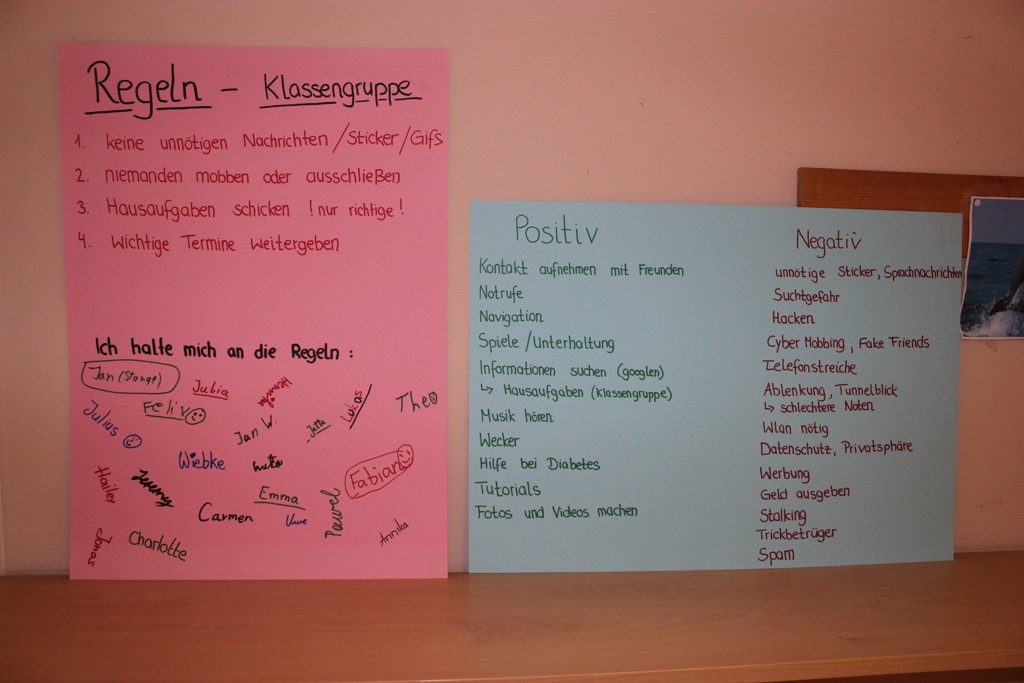 Regeln - Klassengruppe
1. keine unnötigen Nachrichten /Sticker/Gifs
2. niemanden mobben oder ausschließen
3. Hausaufgaben schicken !nur richtige!
4. Wichtige Termine weitergeben
Ich halte mich an die Regeln:
Jan (Stange)
Julia
Hannah
Felix
Lukas
Theo
Julius
Jan W.
Jutta
Wiebke
Fabian
Hailey
Jeremy
Emma
Pawel
Carmen
Uwe
Annika
Jonas
Charlotte
Positiv
Kontakt aufnehmen mit Freunden
Notrufe
Navigation
Spiele /Unterhaltung
Informationen suchen (googlen)
↳ Hausaufgaben (Klassengruppe)
Musik hören
Wecker
Hilfe bei Diabetes
Tutorials
Fotos und Videos machen
Negativ
unnötige Sticker, Sprachnachrichten
Suchtgefahr
Hacken
Cyber Mobbing, Fake Friends
Telefonstreiche
Ablenkung, Tunnelblick
↳ schlechtere Noten
Wlan nötig
Datenschutz, Privatsphäre
Werbung
Geld ausgeben
Stalking
Trickbetrüger
Spam